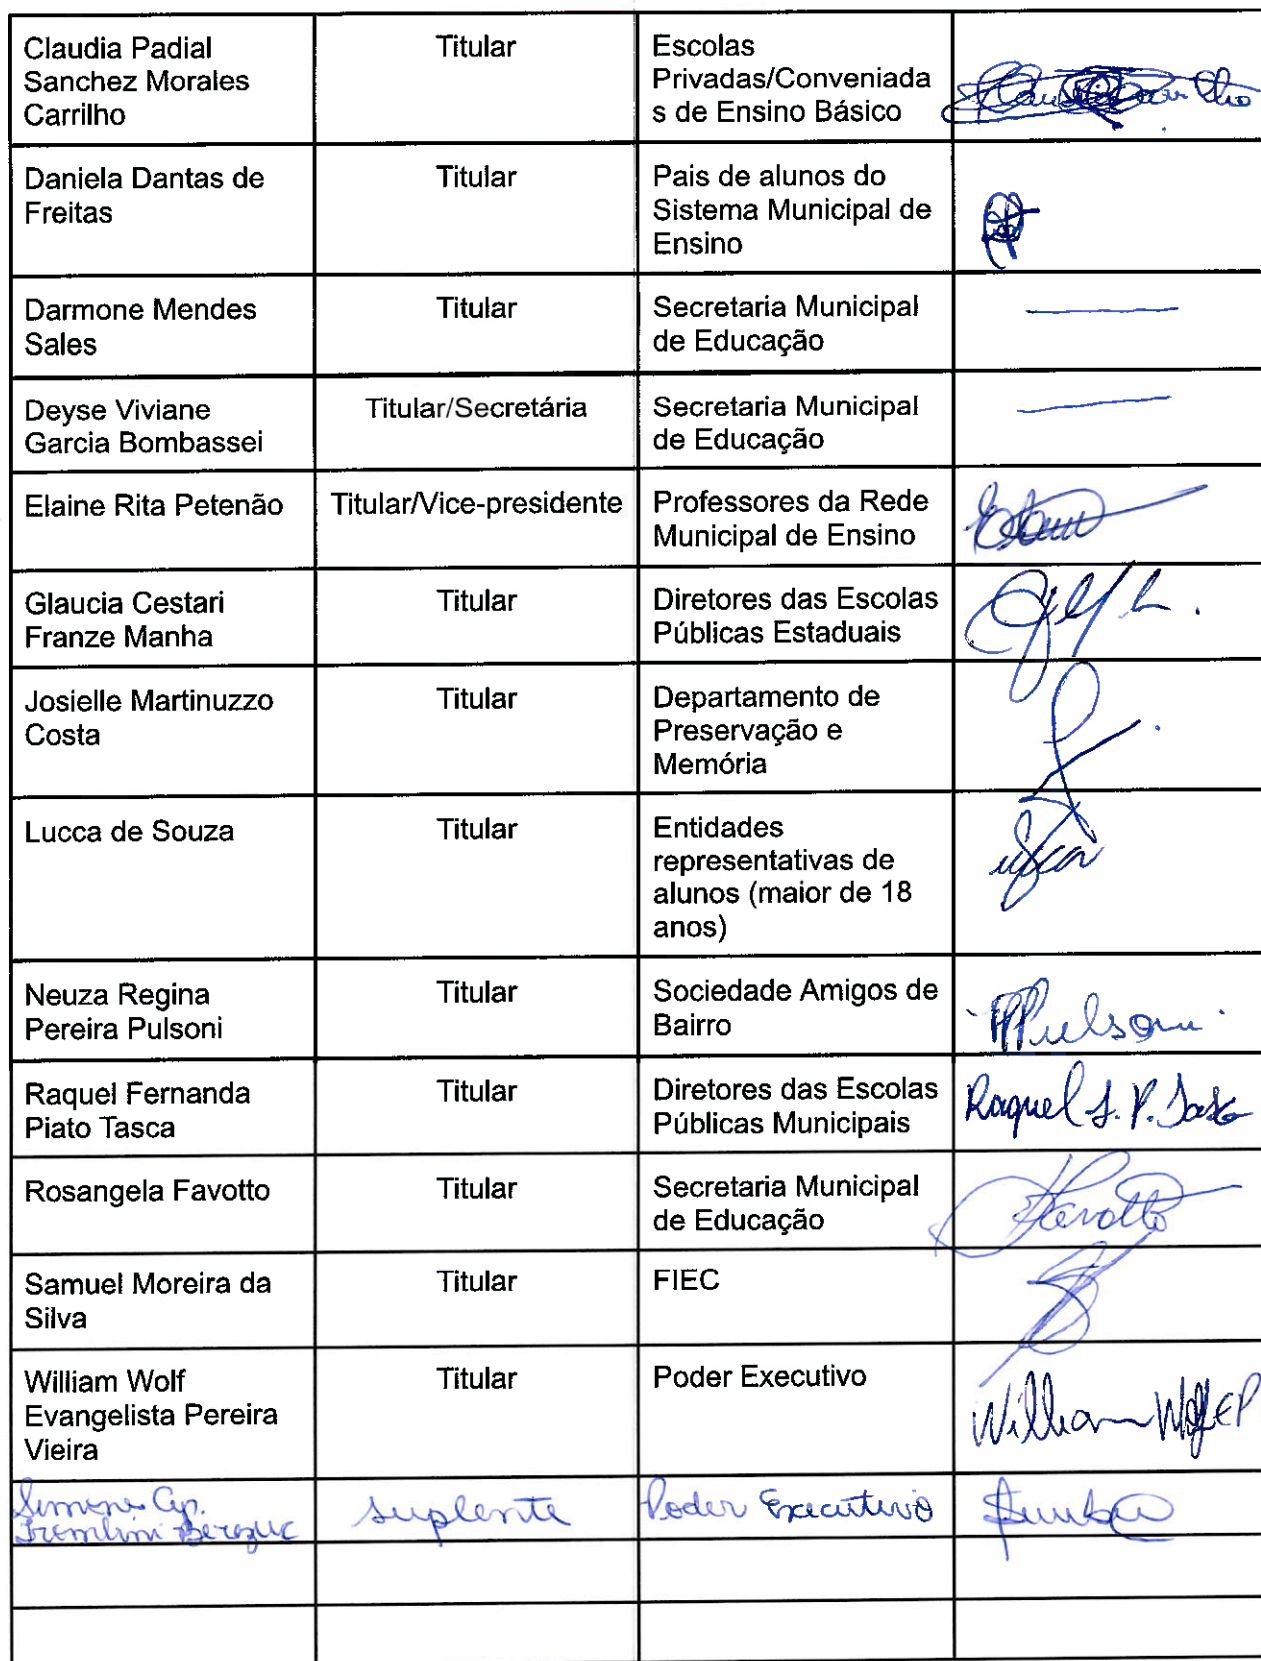 Claudia Padial
Sanchez Morales
Carrilho
Titular
Escolas
Privadas/Conveniada
s de Ensino Básico
Daniela Dantas de
Freitas
Titular
Pais de alunos do
Sistema Municipal de
Ensino
Darmone Mendes
Sales
Titular
Secretaria Municipal
de Educação
Deyse Viviane
Garcia Bombassei
Titular/Secretária
Secretaria Municipal
de Educação
Elaine Rita Petenão
Titular/Vice-presidente
Professores da Rede
Municipal de Ensino
Glaucia Cestari
Franze Manha
Titular
Diretores das Escolas
Públicas Estaduais
Josielle Martinuzzo
Costa
Titular
Departamento de
Preservação e
Memória
Lucca de Souza
Titular
Entidades
representativas de
alunos (maior de 18
anos)
Neuza Regina
Pereira Pulsoni
Titular
Sociedade Amigos de
Bairro
Pulsoni
Raquel Fernanda
Piato Tasca
Titular
Diretores das Escolas
Públicas Municipais
Raquel F. P. Tasca
Rosangela Favotto
Titular
Secretaria Municipal
de Educação
Favotto
Samuel Moreira da
Silva
Titular
FIEC
William Wolf
Evangelista Pereira
Vieira
Titular
Poder Executivo
William Wolf EP
Simone Ap.
suplente
Poder Executivo